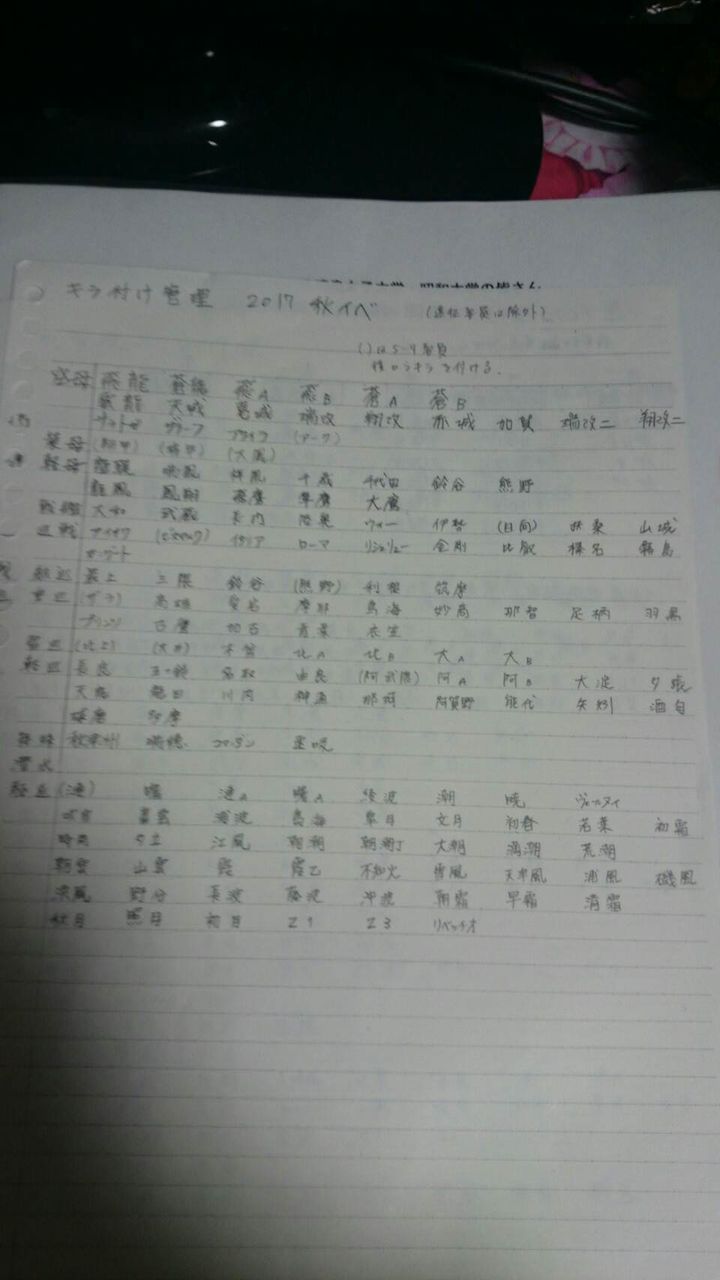 大学 昭和大学の皆さん
キラ付け管理 2017 秋イベ (遠征要員は除外)
()は5-4要員
後からキラを付ける.
空母 飛龍 蒼龍 飛A 飛B 蒼A 蒼B
雲龍 天城 葛城 瑞改 翔改 赤城 加賀 瑞改二 翔改二
サラトガ グラーフ アクィラ (アーク)
装母 (翔甲) (瑞甲) (大鳳)
軽母 龍驤 飛鷹 祥鳳 千歳 千代田 鈴谷 熊野
龍鳳 鳳翔 隼鷹 大鷹
戦艦 大和 武蔵 長門 陸奥 ウォー 伊勢 (日向) 扶桑 山城
巡戦 アイオワ (ビスマルク) イタリア ローマ リシュリュー 金剛 比叡 榛名 霧島
ガングート
航巡 最上 三隈 鈴谷 (熊野) 利根 筑摩
重巡 (ザラ) 高雄 愛宕 摩耶 鳥海 妙高 那智 足柄 羽黒
プリンツ 古鷹 加古 青葉 衣笠
雷巡 (北上) (大井) 木曾 北A 北B 大A 大B
軽巡 長良 五十鈴 名取 由良 (阿武隈) 阿A 阿B 大淀 夕張
天龍 龍田 川内 神通 那珂 阿賀野 能代 矢矧 酒匂
球磨 多摩
秋津洲 瑞穂 コマンダン 速吸
潜水
駆逐 (漣) 曙 漣A 曙A 綾波 潮 暁 ヴェールヌイ
叢雲 皐月 文月 初春 若葉 初霜
時雨 夕立 江風 朝潮 朝潮丁 大潮 満潮 荒潮
朝雲 山雲 霞 霞乙 不知火 雪風 天津風 浦風 磯風
野分 長波 藤波 沖波 朝霜 早霜 清霜
秋月 照月 初月 Z1 Z3 リベッチオ